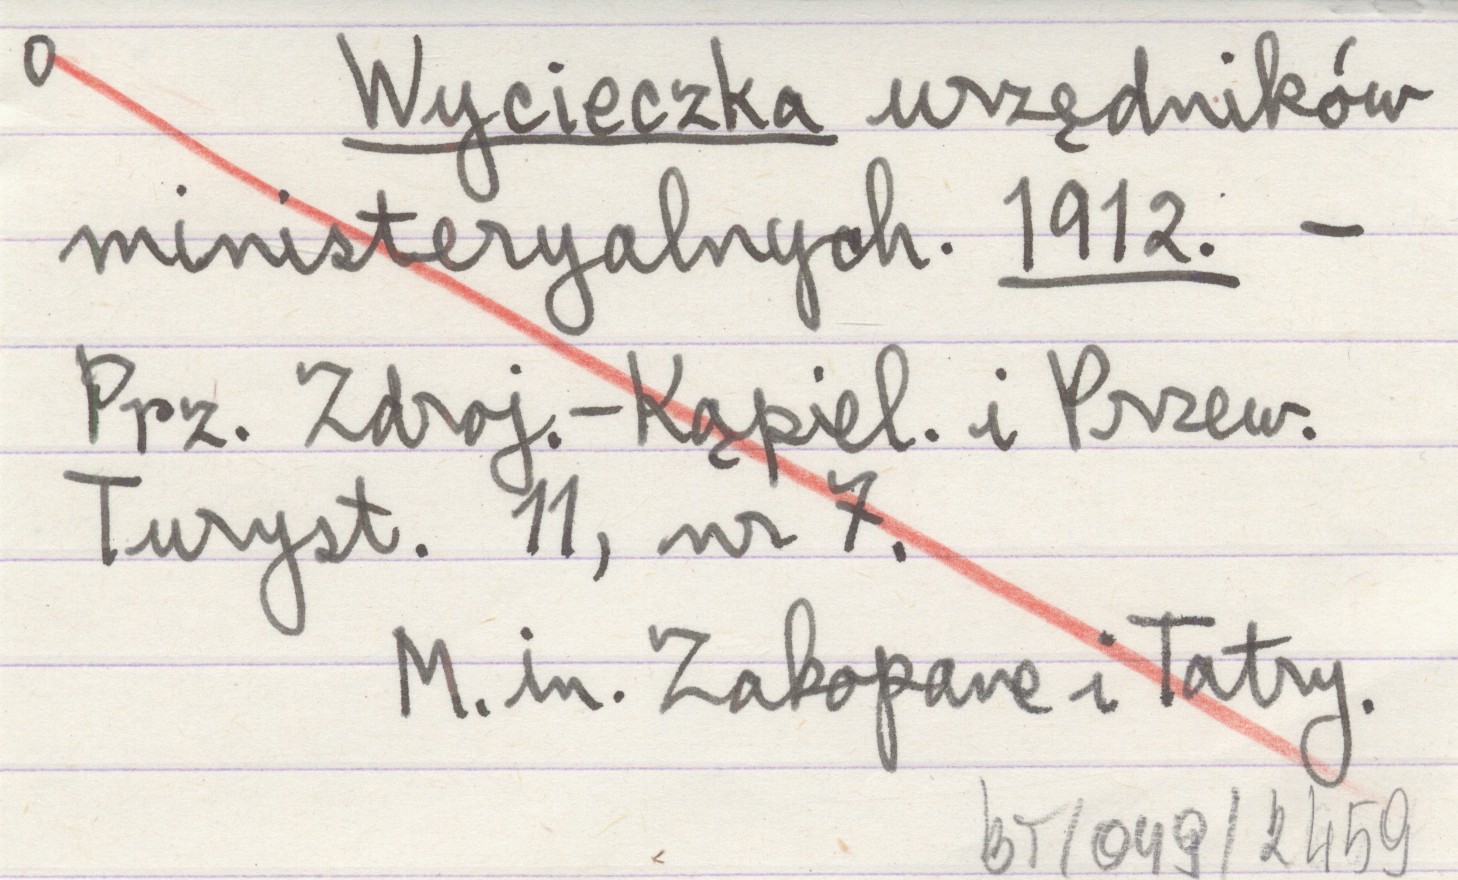 0 Wycieczka urzędników
ministeryalnych. 1912. -
Prz. Zdroj.-Kąpiel. i Przew.
Turyst. 11, nr 7.
M. in. Zakopane i Tatry.
BT/049/2459